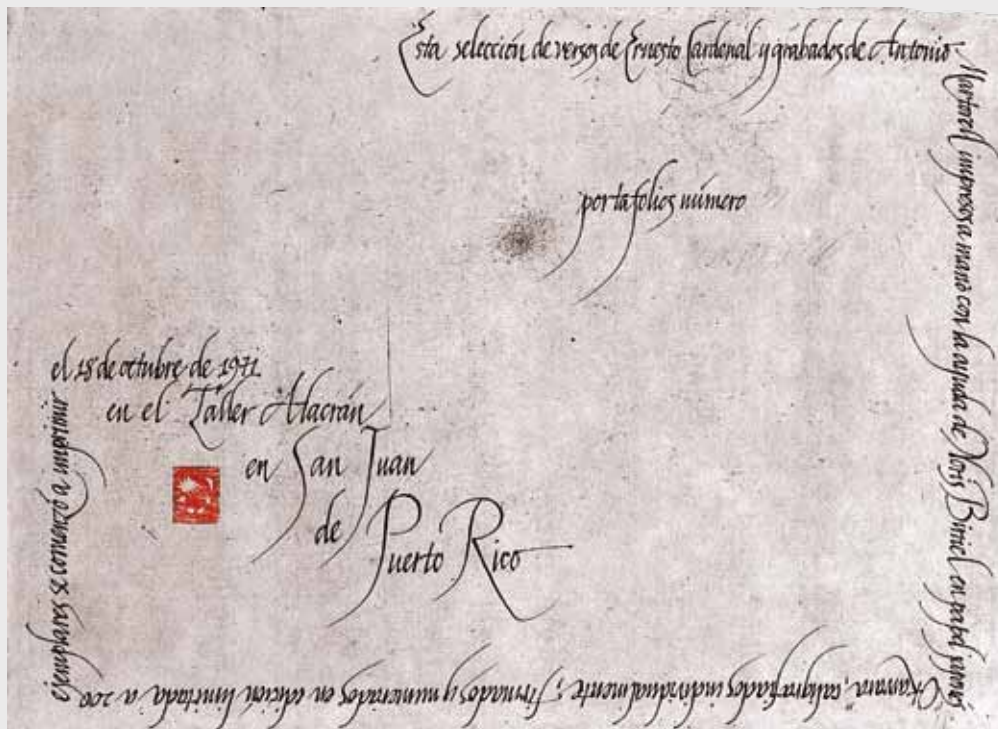 Esta selección de versos de Ernesto Cardenal y grabados de Antonio
Martorell impresos a mano con la ayuda de Noris Birriel en papel japonés
"Kannari", caligrafiados individualmente, firmados y numerados en edición limitada a 200
ejemplares se comenzó a imprimir
el 18 de octubre de 1971
en el Taller Alacrán
en San Juan
de Puerto Rico
portafolios número